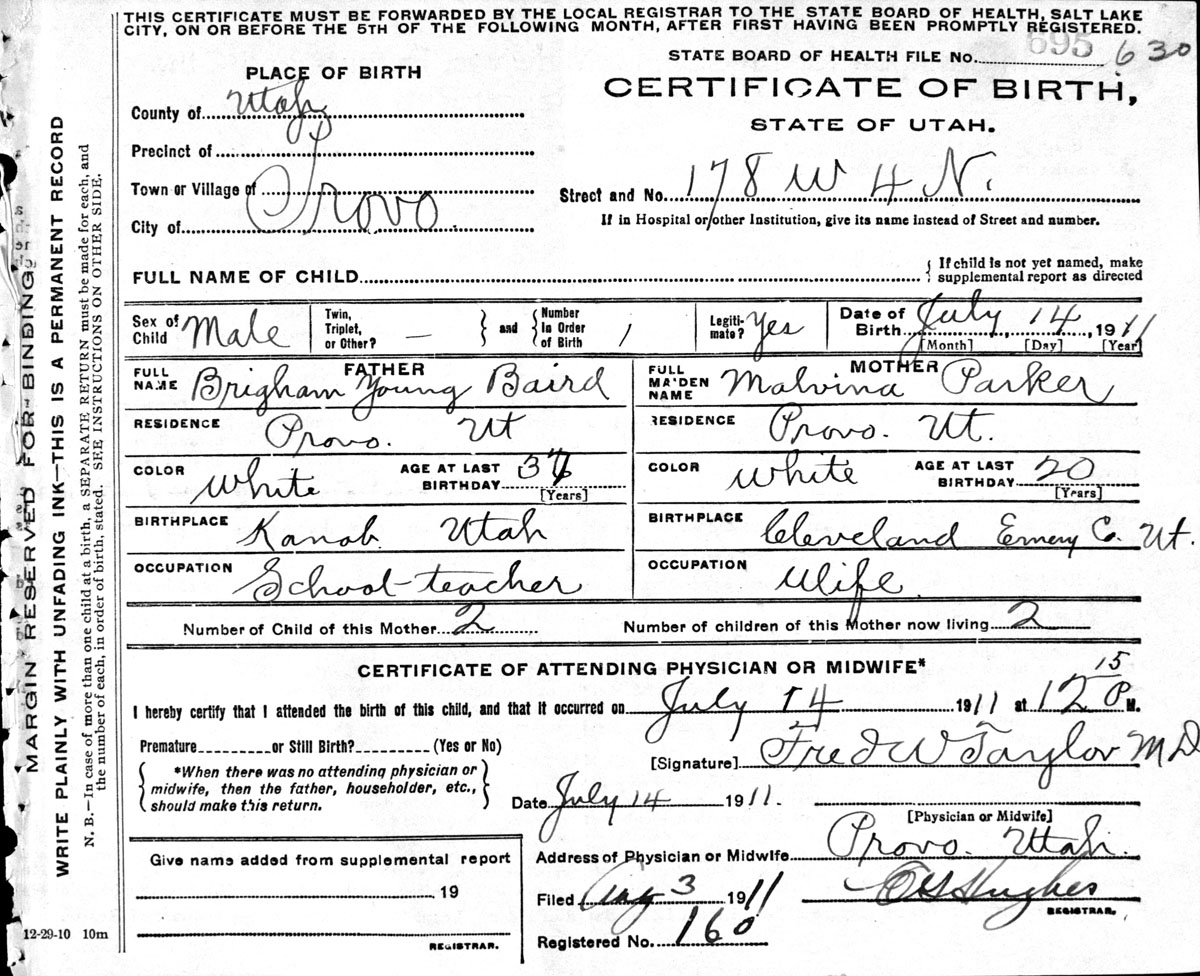 THIS CERTIFICATE MUST BE FORWARDED BY THE LOCAL REGISTRAR TO THE STATE BOARD OF HEALTH, SALT LAKE
CITY, ON OR BEFORE THE 5TH OF THE FOLLOWING MONTH, AFTER FIRST HAVING BEEN PROMPTLY REGISTERED.
STATE BOARD OF HEALTH FILE No. 695 630
PLACE OF BIRTH
CERTIFICATE OF BIRTH,
STATE OF UTAH.
County of Utah
Precinct of
Town or Village of
City of Provo
Street and No. 178 W 4 N.
If in Hospital or other Institution, give its name instead of Street and number.
FULL NAME OF CHILD
If child is not yet named, make
supplemental report as directed
Sex of Child Male
Twin, Triplet, or Other? —
and
Number in Order of Birth 1
Legiti-mate? Yes
Date of Birth July 14, 1911
[Month] [Day] [Year]
FATHER
FULL NAME Brigham Young Baird
RESIDENCE Provo. Ut
COLOR White
AGE AT LAST BIRTHDAY
[Years]
BIRTHPLACE Kanab Utah
OCCUPATION School-teacher
MOTHER
FULL MAIDEN NAME Malvina Parker
RESIDENCE Provo. Ut.
COLOR White
AGE AT LAST BIRTHDAY 20
[Years]
BIRTHPLACE Cleveland Emery Co. Ut.
OCCUPATION Wife
Number of Child of this Mother 2 Number of children of this Mother now living 2
CERTIFICATE OF ATTENDING PHYSICIAN OR MIDWIFE*
I hereby certify that I attended the birth of this child, and that it occurred on July 14 1911 at 12 15 P M.
Premature or Still Birth? (Yes or No)
[Signature] Fred W Taylor MD
*When there was no attending physician or
midwife, then the father, householder, etc.,
should make this return.
Date July 14 1911.
[Physician or Midwife]
Address of Physician or Midwife Provo. Utah.
Give name added from supplemental report
19
REGISTRAR.
Filed Aug 3 1911
Hughes
REGISTRAR.
Registered No. 160
12-29-10 10m
MARGIN RESERVED FOR BINDING
WRITE PLAINLY WITH UNFADING INK—THIS IS A PERMANENT RECORD
N. B.—In case of more than one child at a birth, a SEPARATE RETURN must be made for each, and
the number of each, in order of birth, stated. SEE INSTRUCTIONS ON OTHER SIDE.